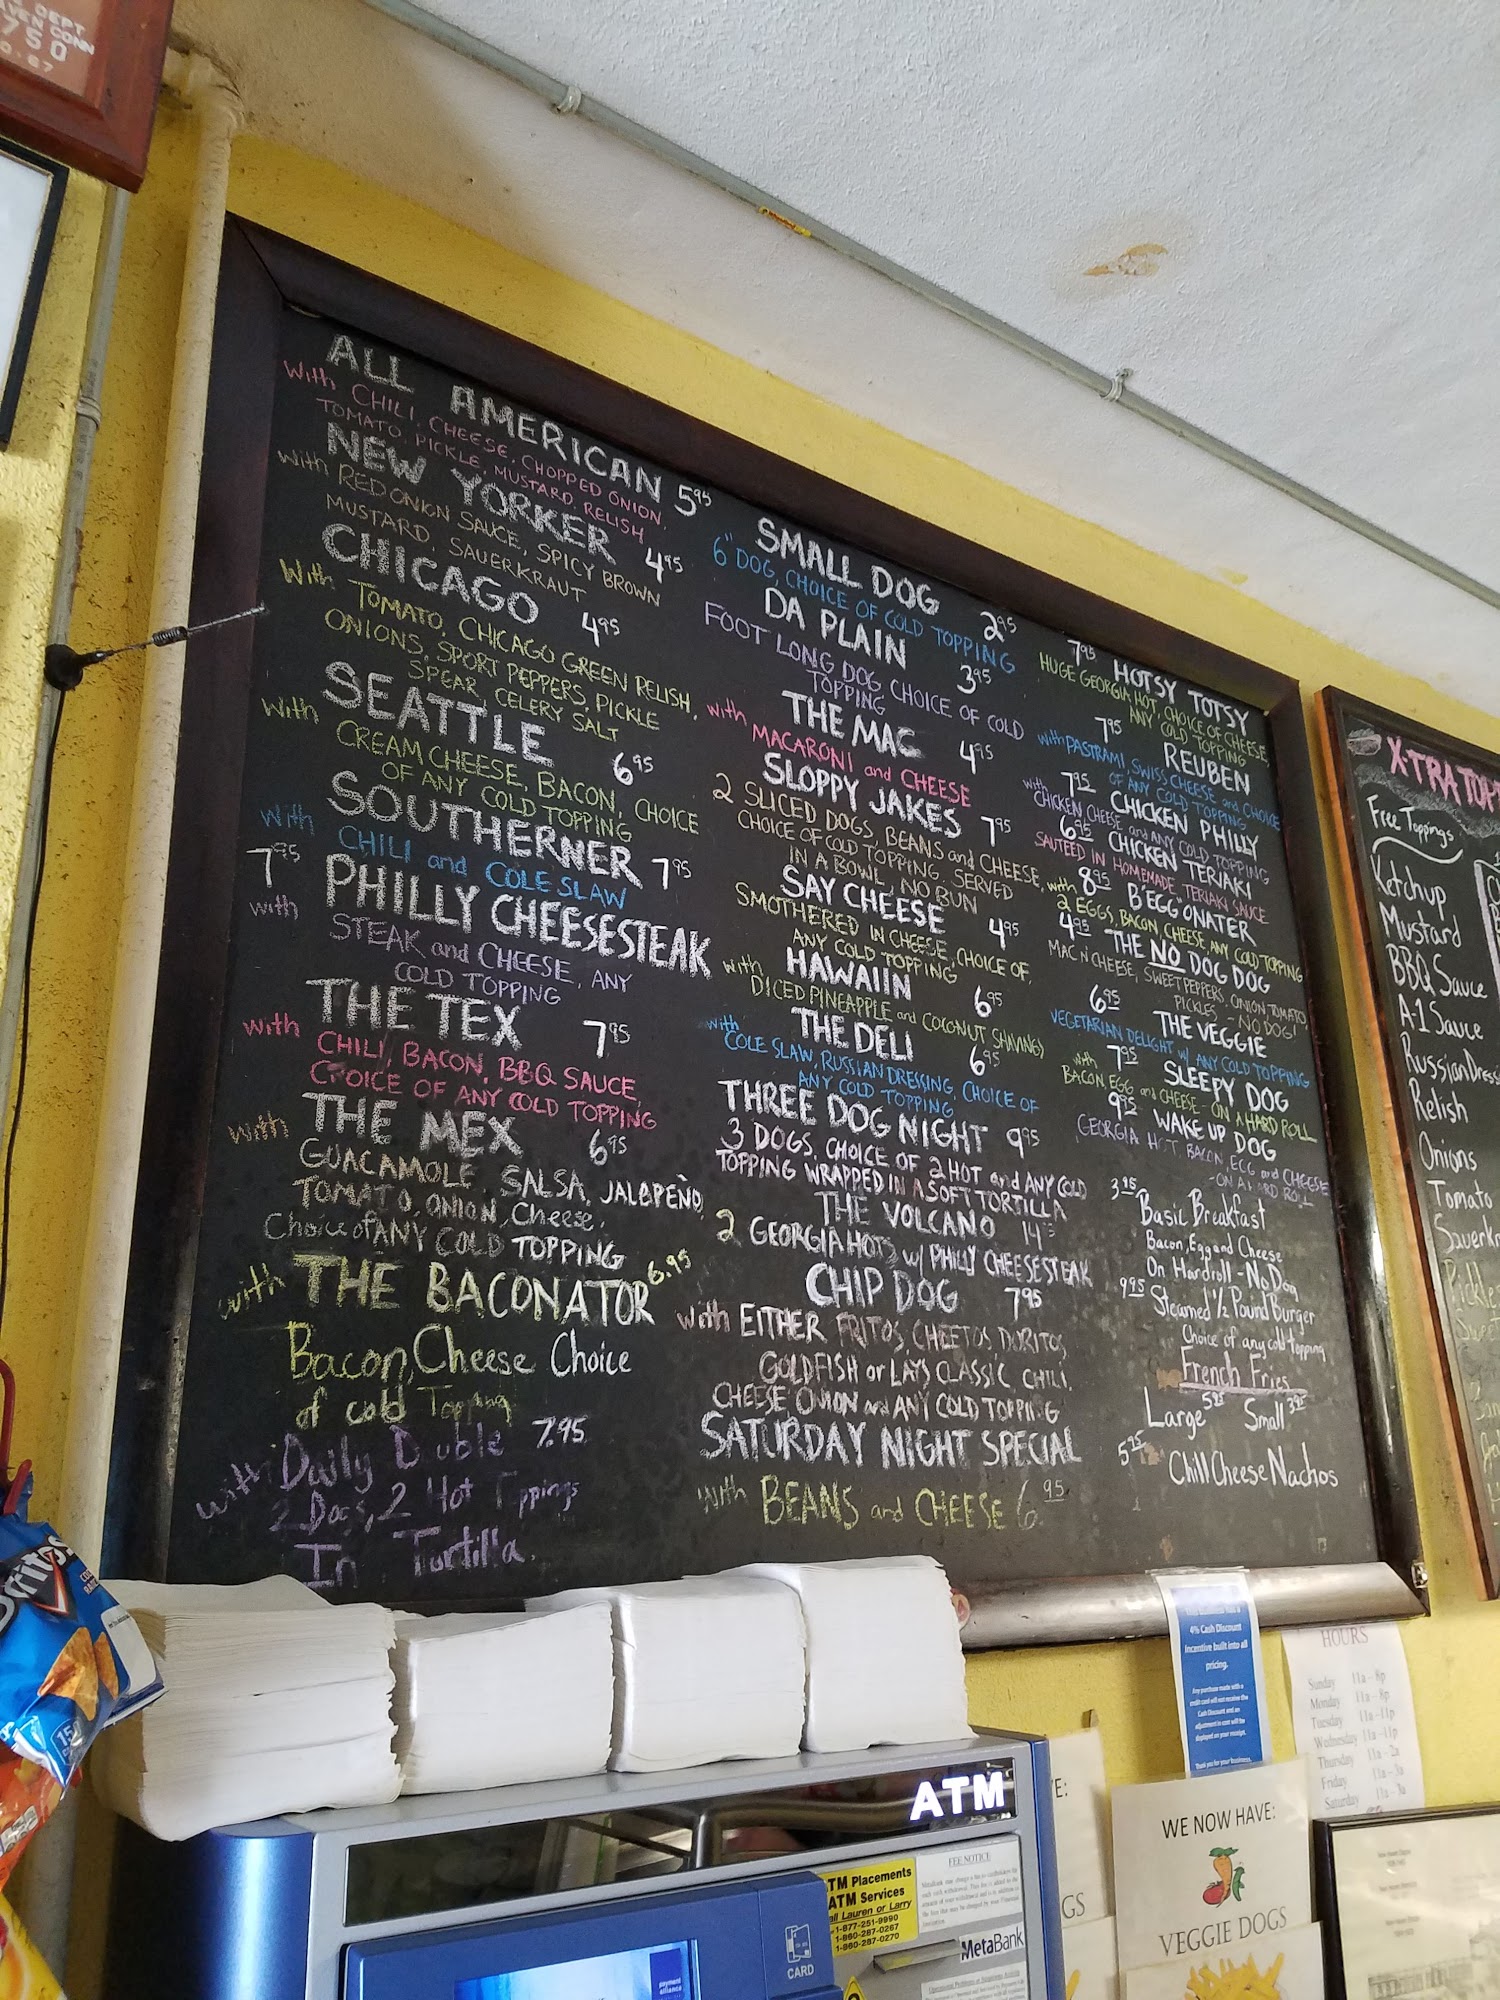 DEPT
CONN
ALL AMERICAN 5.95
with CHILI, CHEESE, CHOPPED ONION,
TOMATO, PICKLE, MUSTARD, RELISH
NEW YORKER 4.95
with RED ONION SAUCE, SPICY BROWN
MUSTARD, SAUERKRAUT
CHICAGO 4.95
with TOMATO, CHICAGO GREEN RELISH,
ONIONS, SPORT PEPPERS, PICKLE
SPEAR, CELERY SALT
SEATTLE 6.95
with CREAM CHEESE, BACON, CHOICE
OF ANY COLD TOPPING
SOUTHERNER 7.95
with CHILI and COLE SLAW
7.95 PHILLY CHEESESTEAK
with STEAK and CHEESE, ANY
COLD TOPPING
THE TEX 7.95
with CHILI, BACON, BBQ SAUCE,
CHOICE OF ANY COLD TOPPING
THE MEX 6.95
with GUACAMOLE, SALSA, JALAPEÑO,
TOMATO, ONION, Cheese,
Choice of ANY COLD TOPPING
with THE BACONATOR 6.95
Bacon, Cheese Choice
of cold Topping
with Daily Double 7.95
2 Dogs, 2 Hot Toppings
In Tortilla
SMALL DOG 2.95
6" DOG, CHOICE OF COLD TOPPING
DA PLAIN 3.95
FOOT LONG DOG, CHOICE OF COLD
TOPPING
THE MAC 4.95
with MACARONI and CHEESE
SLOPPY JAKES 7.95
2 SLICED DOGS, BEANS and CHEESE,
CHOICE OF COLD TOPPING, SERVED
IN A BOWL, NO BUN
SAY CHEESE 4.95
SMOTHERED IN CHEESE, CHOICE OF
ANY COLD TOPPING
HAWAIIN 6.95
with DICED PINEAPPLE and COCONUT SHAVINGS
THE DELI 6.95
with COLE SLAW, RUSSIAN DRESSING, CHOICE OF
ANY COLD TOPPING
THREE DOG NIGHT 9.95
3 DOGS, CHOICE OF 2 HOT and ANY COLD
TOPPING WRAPPED IN A SOFT TORTILLA
THE VOLCANO
2 GEORGIA HOTS w/ PHILLY CHEESESTEAK
CHIP DOG 7.95
with EITHER FRITOS, CHEETOS, DORITOS,
GOLDFISH or LAYS CLASSIC CHILI,
CHEESE ONION and ANY COLD TOPPING
SATURDAY NIGHT SPECIAL
with BEANS and CHEESE 6.95
7.95 HOTSY TOTSY
HUGE GEORGIA HOT, CHOICE OF CHEESE,
ANY COLD TOPPING
7.95 REUBEN
with PASTRAMI, SWISS CHEESE and CHOICE
OF ANY COLD TOPPING
7.95 CHICKEN PHILLY
with CHICKEN, CHEESE and ANY COLD TOPPING
6.95 CHICKEN TERIAKI
SAUTEED IN HOMEMADE TERIAKI SAUCE
8.95 B'EGG ONATER
with 2 EGGS, BACON, CHEESE, ANY COLD TOPPING
4.95 THE NO DOG DOG
MAC N' CHEESE, SWEET PEPPERS, ONION, TOMATO,
PICKLES - NO DOG!
6.95 THE VEGGIE
VEGETARIAN DELIGHT W/ ANY COLD TOPPING
7.95 SLEEPY DOG
with BACON, EGG and CHEESE - ON A HARD ROLL
9.95 WAKE UP DOG
GEORGIA HOT, BACON, EGG and CHEESE
- ON A HARD ROLL
3.95 Basic Breakfast
Bacon, Egg and Cheese
On Hardroll - No Dog
9.95 Steamed 1/2 Pound Burger
Choice of any cold topping
French Fries
Large 5.95 Small 3.95
Chili Cheese Nachos
X-TRA
Free Toppings
Ketchup
Mustard
BBQ Sauce
A-1 Sauce
Russian
Relish
Onions
Tomato
Doritos
4% Cash Discount
Incentive built into all
pricing.
Any purchase made with a
credit card will not receive the
Cash Discount and an
adjustment in cost will be
displayed on your receipt.
Thank you for your business.
HOURS
Sunday 11a - 8p
Monday 11a - 8p
Tuesday 11a - 11p
Wednesday 11a - 11p
Thursday 11a - 2a
Friday 11a - 3a
Saturday 11a - 3a
WE NOW HAVE:
VEGGIE DOGS
ATM
FEE NOTICE
ATM Placements
ATM Services
Call Lauren or Larry
1-877-251-9990
1-860-287-0267
1-860-287-0270
MetaBank
CARD
payment
alliance